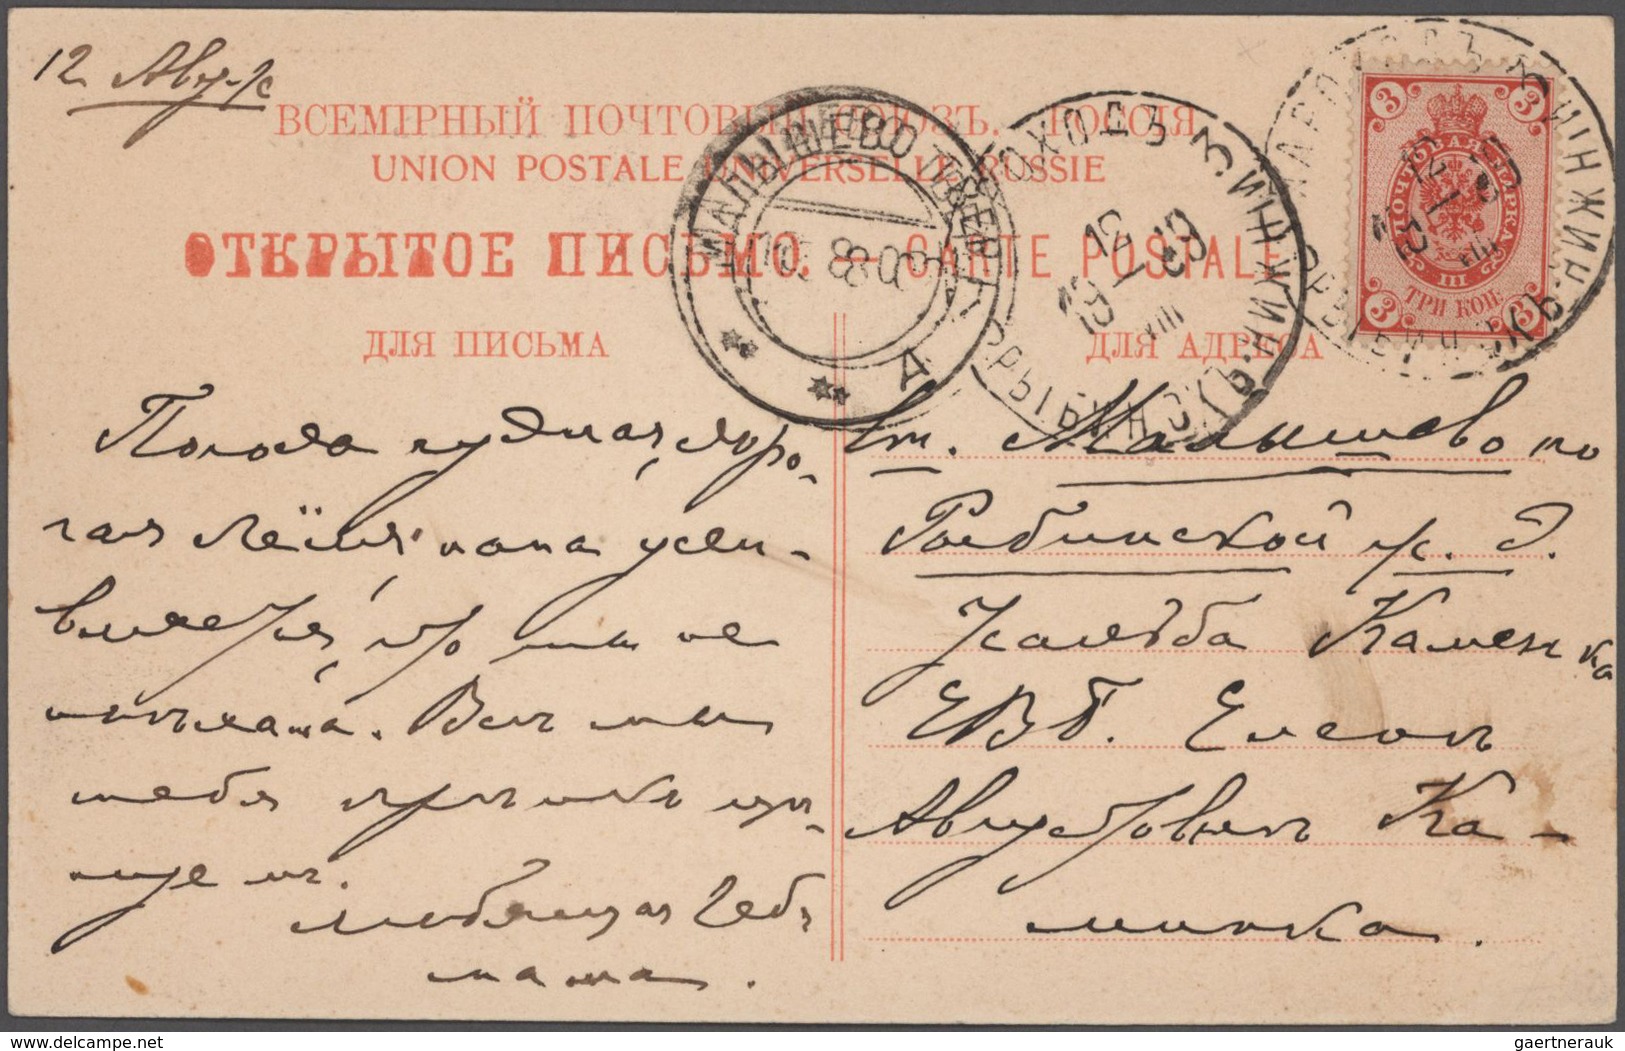 12 Авг-/с
ВСЕМІРНЫЙ ПОЧТОВЫЙ СОЮЗЪ. РОССІЯ
UNION POSTALE UNIVERSELLE RUSSIE
ОТКРЫТОЕ ПИСЬМО. — CARTE POSTALE
ДЛЯ ПИСЬМА
ДЛЯ АДРЕСА
МАЛЫШЕВО ТВЕР
А
ПАРОХОДЪ "ИНЖИН.
ПОЧТОВАЯ МАРКА
3 3
3 3
III
ТРИ КОП.
Погода чудная, доро-
гая Лёля, папа удив-
вляется, что ты не
поѣхала. Всѣ мы
тебя крѣпко цѣ-
луемъ.
любящая тебя
мама.
ст. Малышево по
Рыбинской ж. д.
Усадьба Каменка
ЕВБ. Еленѣ
Августовнѣ Ка-
минка.
gaertnerauk